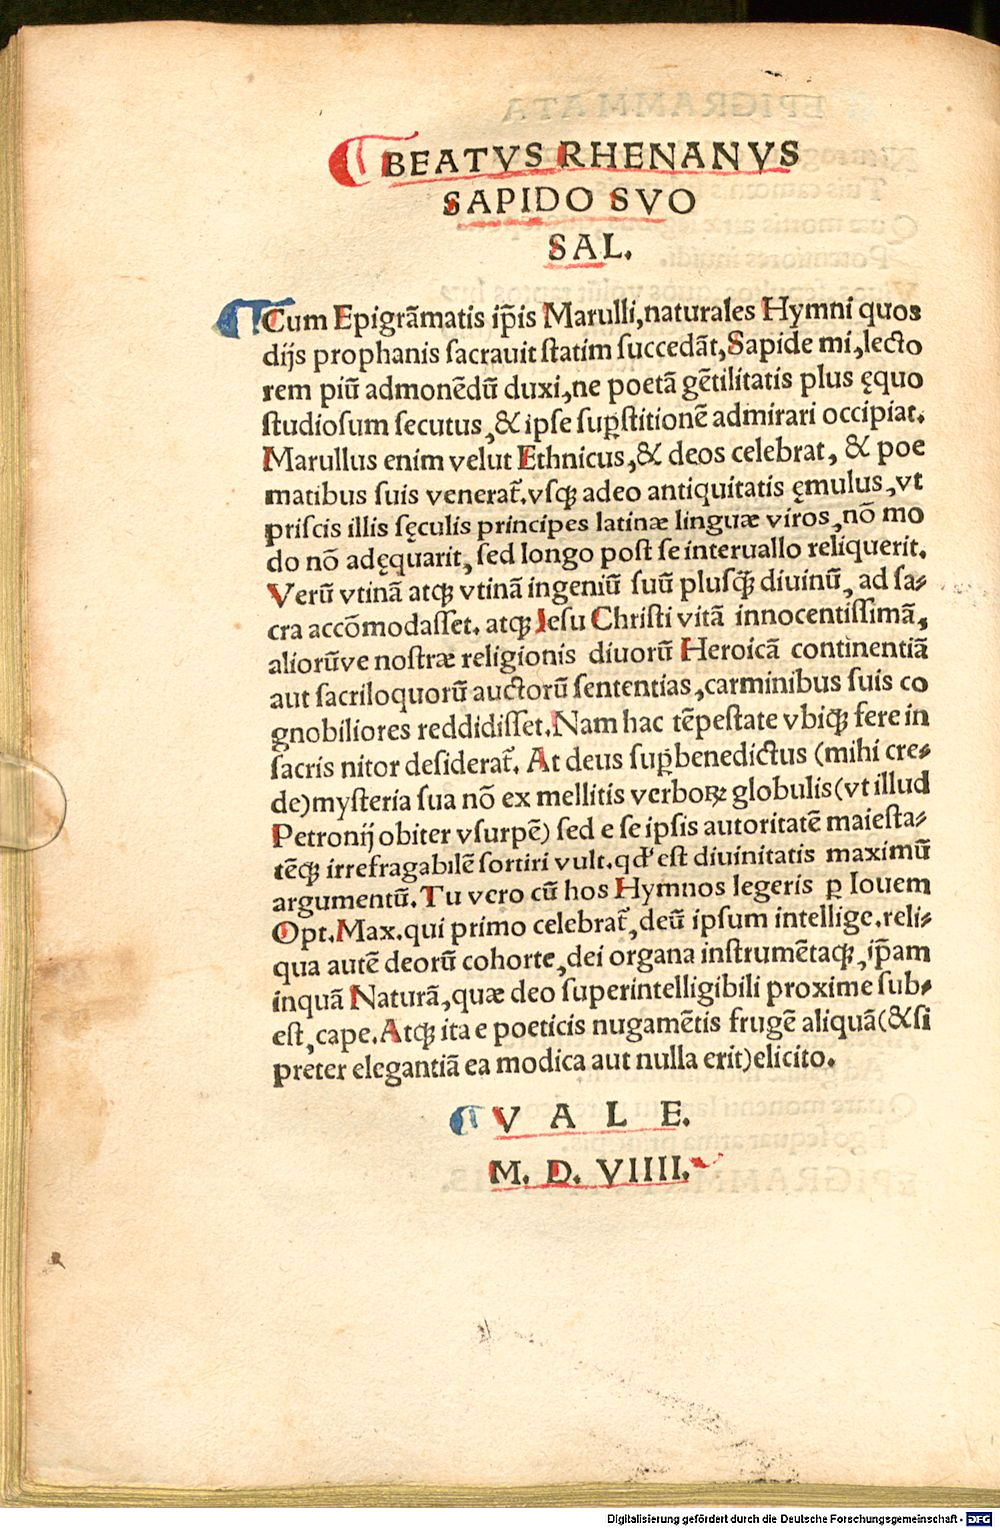 BEATVS RHENANVS
SAPIDO SVO
SAL.
Cum Epigrãmatis ip̃is Marulli, naturales Hymni quos
dijs prophanis sacrauit statim succedãt, Sapide mi, lecto
rem piũ admonẽdũ duxi, ne poetã gẽtilitatis plus ęquo
studiosum secutus, & ipse sup̱stitionẽ admirari occipiat.
Marullus enim velut Ethnicus, & deos celebrat, & poe
matibus suis venerat᷑. vsqꝫ adeo antiquitatis ęmulus, vt
priscis illis sęculis principes latinæ linguæ viros, nõ mo
do nõ adęquarit, sed longo post se interuallo reliquerit.
Verũ vtinã atqꝫ vtinã ingeniũ suũ plusqꝫ̃ diuinũ, ad sa-
cra accõmodasset. atqꝫ Iesu Christi vitã innocentissimã,
aliorũve nostræ religionis diuorũ Heroicã continentiã
aut sacriloquorũ auctorũ sententias, carminibus suis co
gnobiliores reddidisset. Nam hac tẽpestate vbiqꝫ fere in
sacris nitor desiderat᷑. At deus sup̱benedictus (mihi cre-
de) mysteria sua nõ ex mellitis verboꝝ globulis (vt illud
Petronij obiter vsurpẽ) sed e se ipsis autoritatẽ maiesta-
tẽqꝫ irrefragabilẽ sortiri vult. qđ est diuinitatis maximũ
argumentũ. Tu vero cũ hos Hymnos legeris ꝑ Iouem
Opt. Max. qui primo celebrat᷑, deũ ipsum intellige. reli-
qua autẽ deorũ cohorte, dei organa instrumẽtaqꝫ, ip̃am
inquã Naturã, quæ deo superintelligibili proxime sub-
est, cape. Atqꝫ ita e poeticis nugamẽtis frugẽ aliquã (& si
preter elegantiã ea modica aut nulla erit) elicito.
V A L E.
M. D. VIIII.
Digitalisierung gefördert durch die Deutsche Forschungsgemeinschaft - DFG